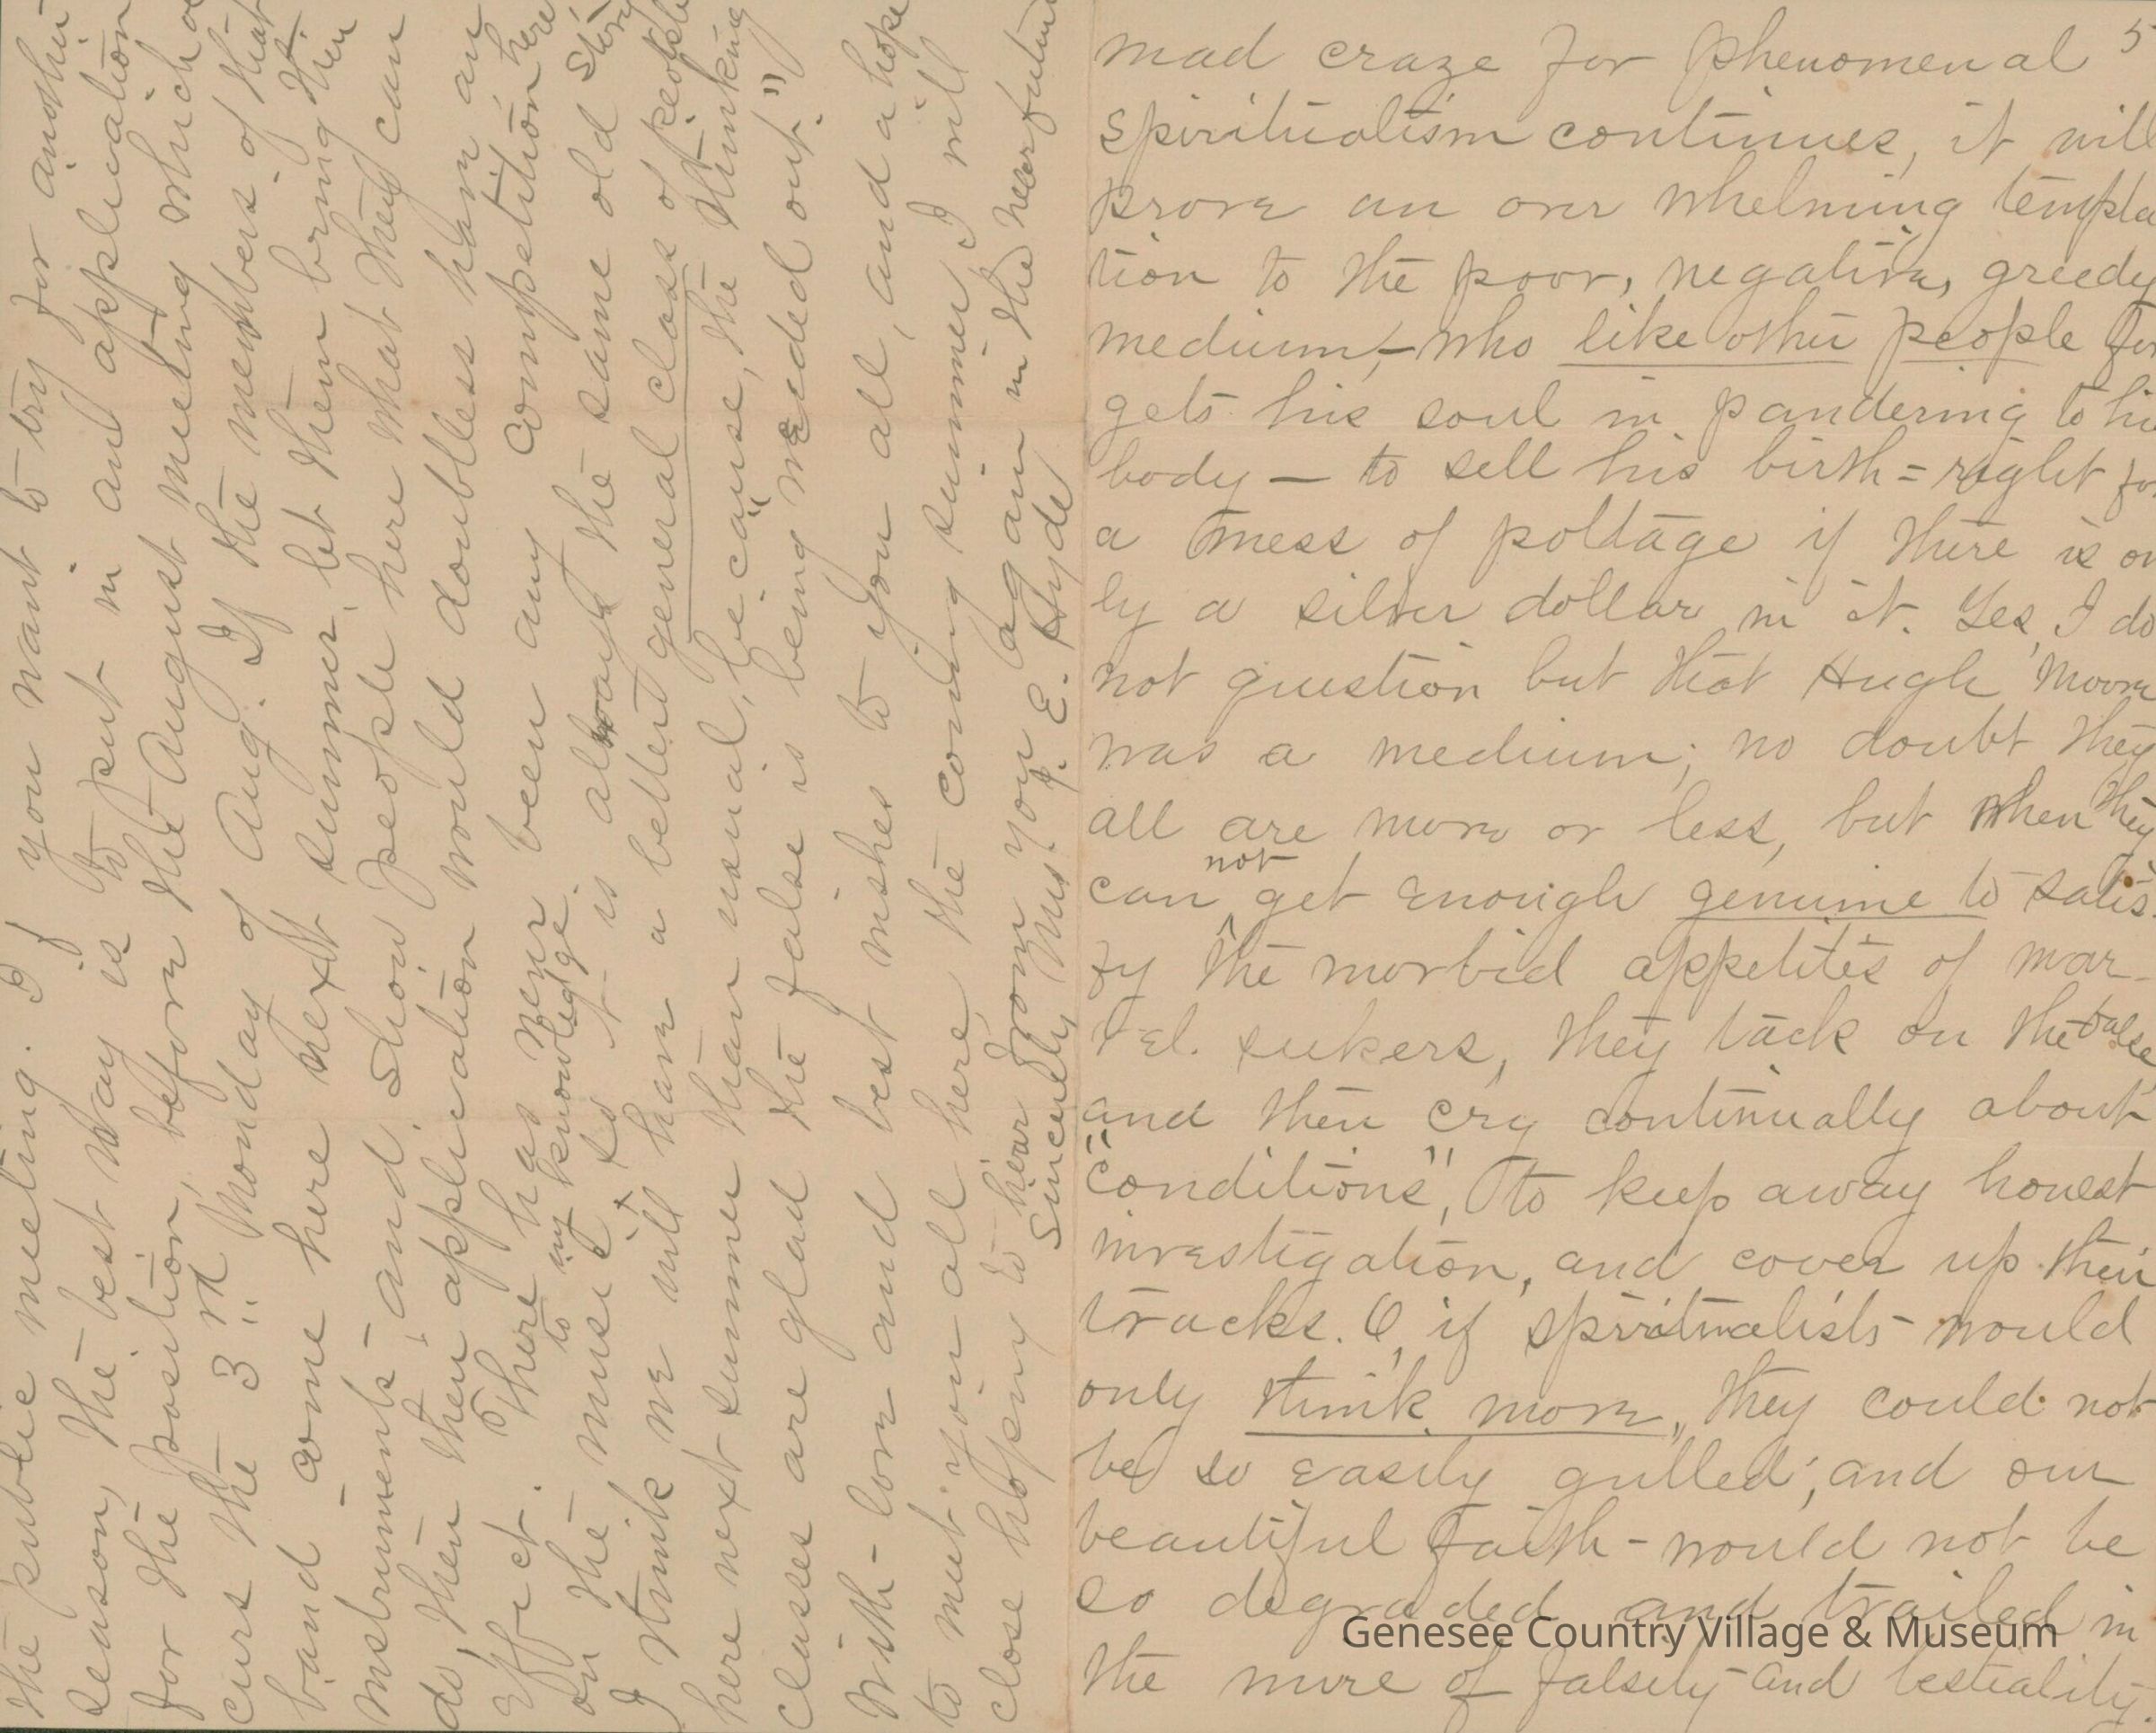 5
mad craze for phenomenal
spiritualism continues, it will
prove an over whelming tempta
tion to the poor, negative, greedy
medium, – who like other people for
gets his soul in pandering to his
body – to sell his birth = right for
a mess of pottage if there is on
ly a silver dollar in it. Yes, I do
not question but that Hugh Moore
was a medium; no doubt they
all are more or less, but when they
can not get enough genuine to satis
fy the morbid appetites of mar-
vel seekers, they tack on the false
and then cry continually about
"conditions", to keep away honest
investigation, and cover up their
tracks. O, if spiritualists would
only think more, they could not
be so easily gulled; and our
beautiful faith – would not be
so degraded and trailed in
the mire of falsity and bestiality.
the public meeting. If you want to try for another
season, the best way is to put in an application
for the position, before the August meeting which oc
curs the 3rd Monday of Aug. If the members of that
band come here next summer, let them bring their
instruments, and show people here what they can
do, then their application would doubtless have an
effect. There has never been any competition here
to my knowledge.
on the music, & so it is always the same old story
I think we will have a better general class of people
here next summer than usual, because, the "thinking
classes are glad the false is being weeded out."
With love and best wishes to you all, and a hope
to meet you all here, the coming summer, I will
close hoping to hear from you again in the near future
Sincerely Mrs. J. E. Hyde
Genesee Country Village & Museum